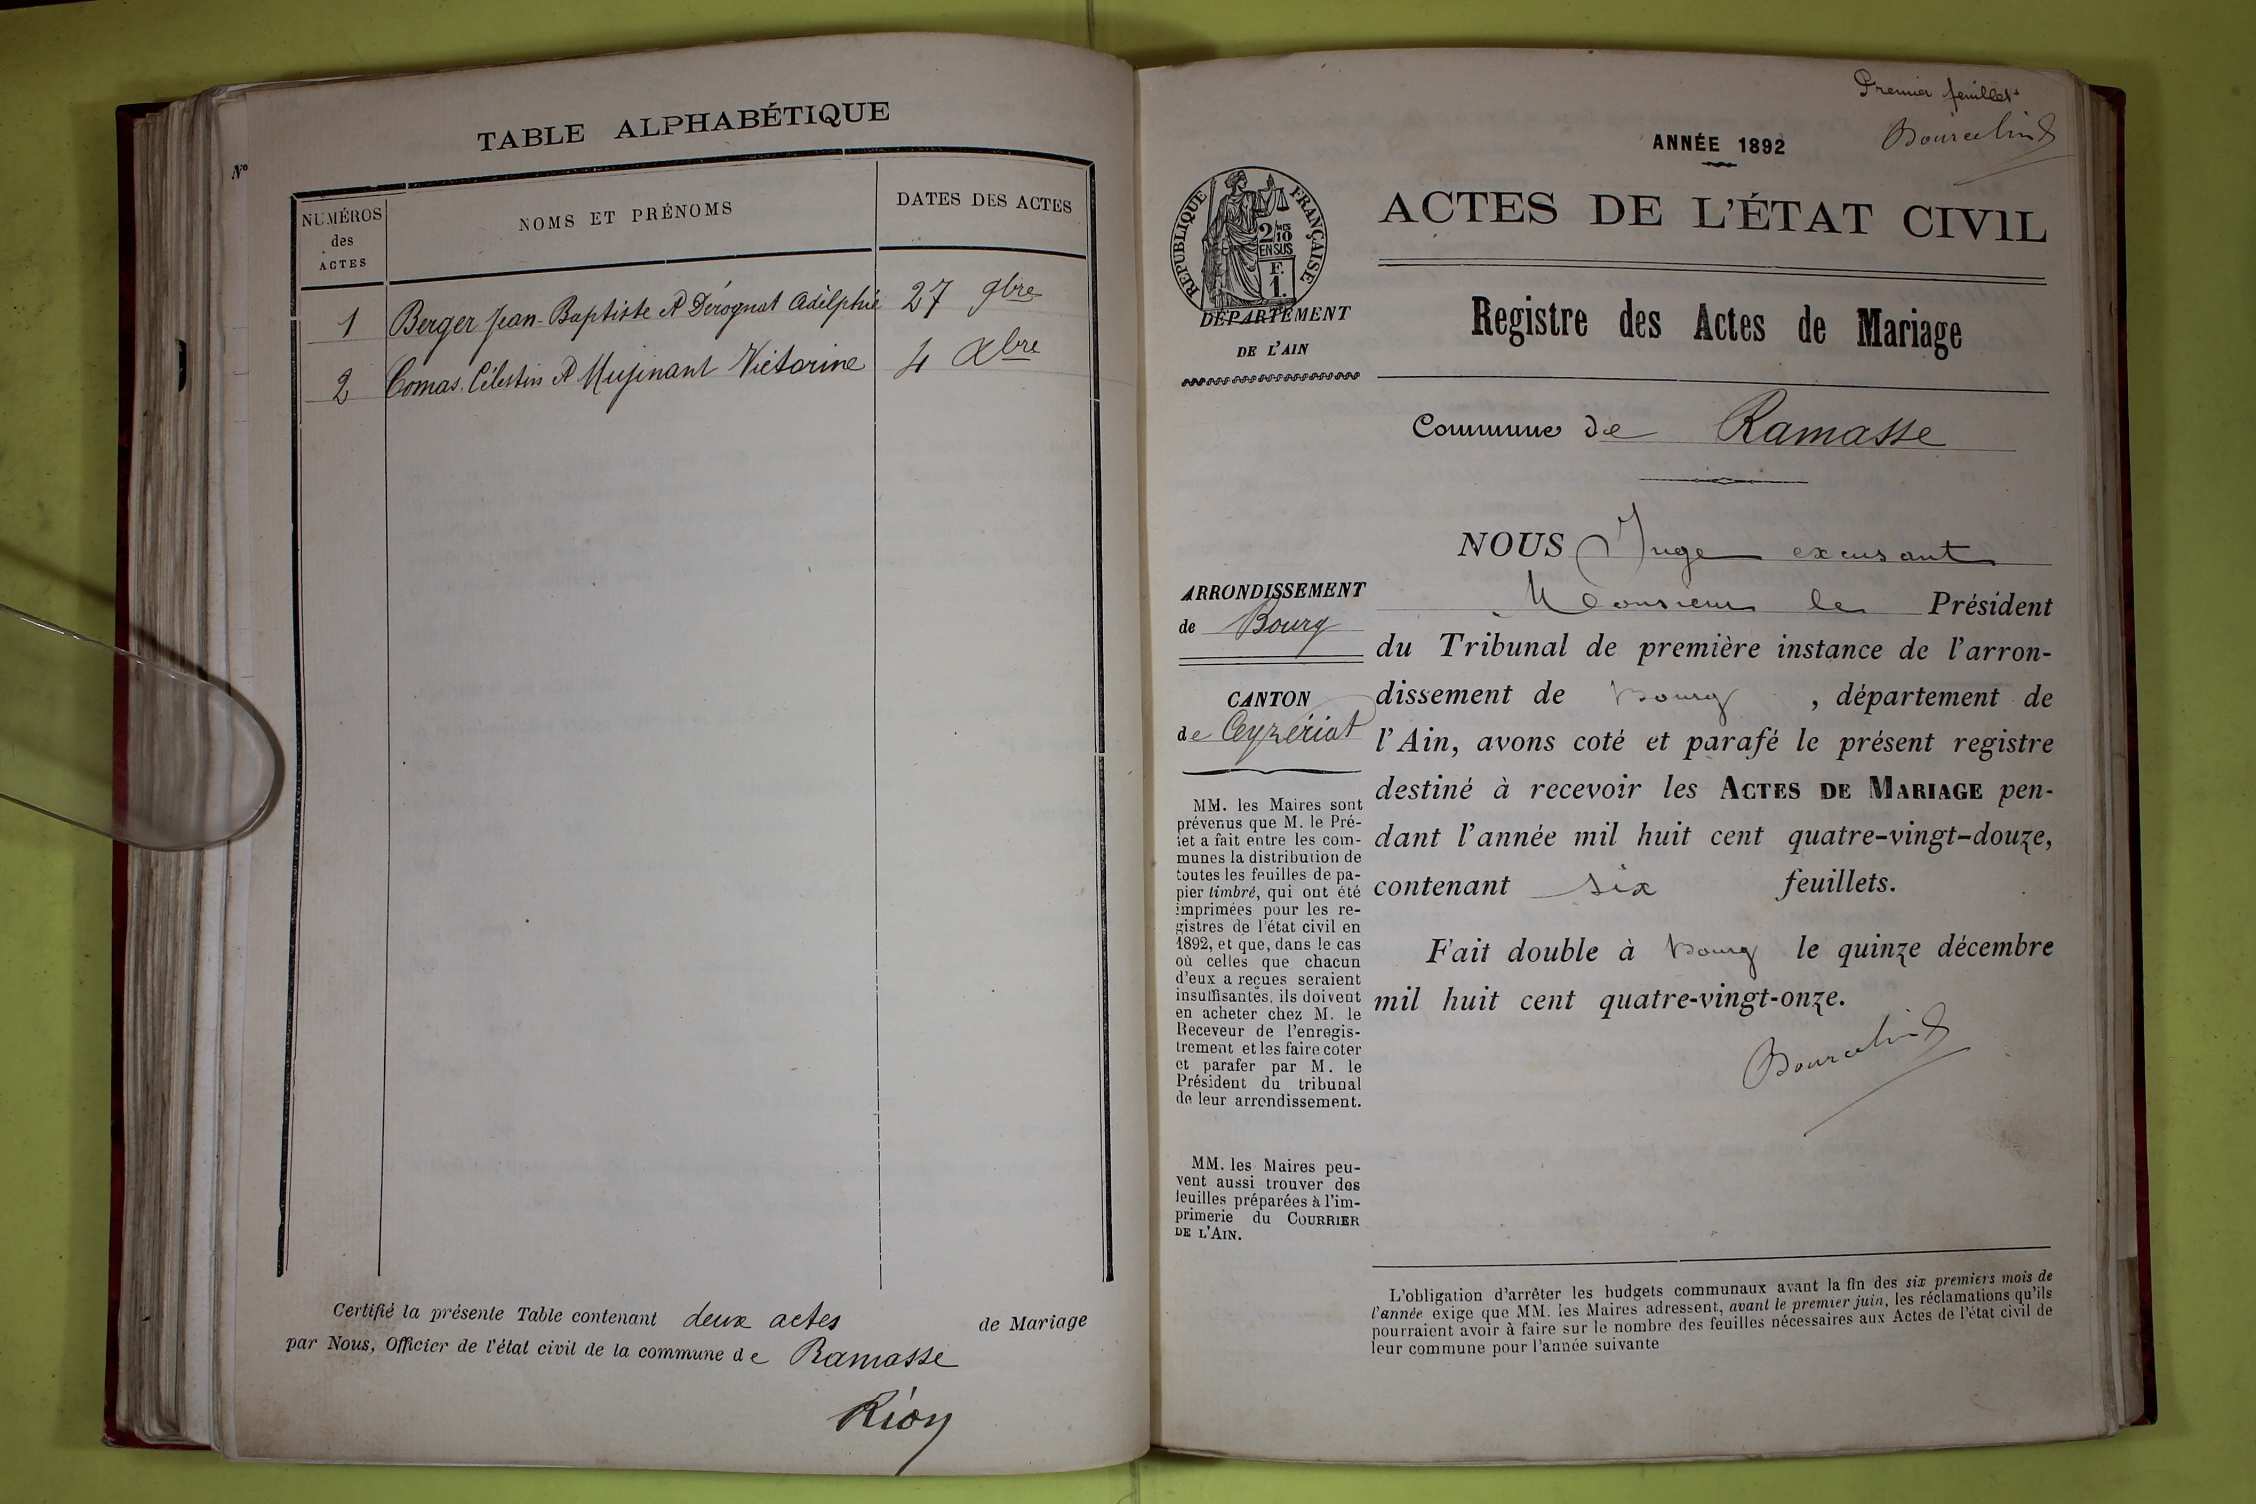 TABLE ALPHABÉTIQUE
N°
NUMÉROS
des
ACTES
NOMS ET PRÉNOMS
DATES DES ACTES
1 Berger Jean-Baptiste et Dérognat Adelphie 27 9bre
2 Comas Célestin et Victorine 4 Xbre
Certifié la présente Table contenant deux actes de Mariage
par Nous, Officier de l'état civil de la commune de Ramasse
Premier feuillet
ANNÉE 1892
RÉPUBLIQUE FRANÇAISE
2/10
EN SUS
F.
1.
ACTES DE L'ÉTAT CIVIL
DÉPARTEMENT
DE L'AIN
Registre des Actes de Mariage
Commune de Ramasse
ARRONDISSEMENT
de Bourg
CANTON
de Ceyzériat
MM. les Maires sont
prévenus que M. le Pré-
fet a fait entre les com-
munes la distribution de
toutes les feuilles de pa-
pier timbré, qui ont été
imprimées pour les re-
gistres de l'état civil en
1892, et que, dans le cas
où celles que chacun
d'eux a reçues seraient
insuffisantes, ils doivent
en acheter chez M. le
Receveur de l'enregis-
trement et les faire coter
et parafer par M. le
Président du tribunal
de leur arrondissement.
MM. les Maires peu-
vent aussi trouver des
feuilles préparées à l'im-
primerie du COURRIER
DE L'AIN.
NOUS Juge excusant
Monsieur le Président
du Tribunal de première instance de l'arron-
dissement de Bourg, département de
l'Ain, avons coté et parafé le présent registre
destiné à recevoir les ACTES DE MARIAGE pen-
dant l'année mil huit cent quatre-vingt-douze,
contenant six feuillets.
Fait double à Bourg le quinze décembre
mil huit cent quatre-vingt-onze.
L'obligation d'arrêter les budgets communaux avant la fin des six premiers mois de
l'année exige que MM. les Maires adressent, avant le premier juin, les réclamations qu'ils
pourraient avoir à faire sur le nombre des feuilles nécessaires aux Actes de l'état civil de
leur commune pour l'année suivante